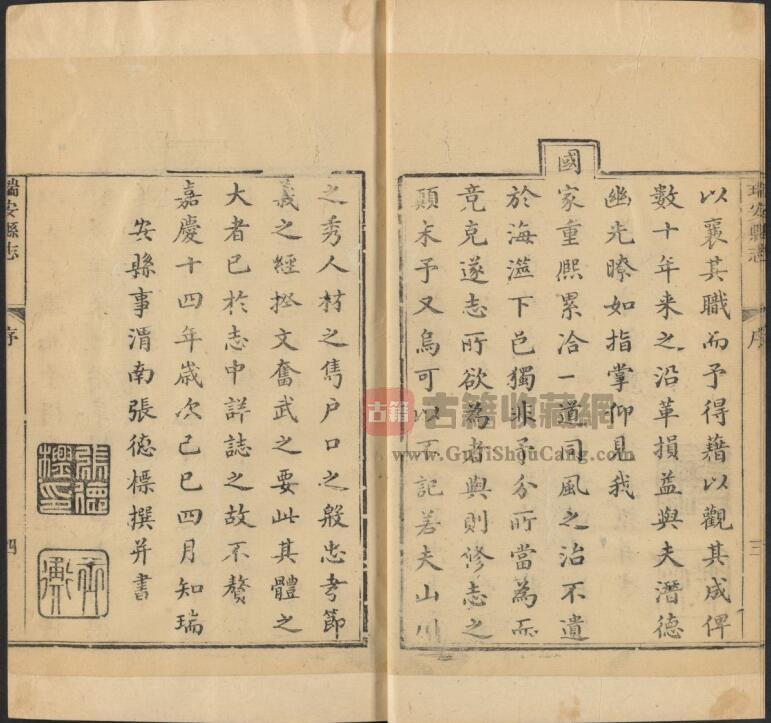 瑞安縣志
序
三
以襄其職而予得藉以觀其成俾
數十年来之沿革損益與夫潛德
幽光瞭如指掌仰見我
國家重熙累洽一道同風之治不遺
於海澨下邑獨非予分所當為而
竟克遂志所欲為者與則修志之
顛末予又烏可以不記若夫山川
之秀人材之雋户口之殷忠孝節
義之經揆文奮武之要此其體之
大者已於志中詳誌之故不贅
嘉慶十四年歲次己巳四月知瑞
安縣事渭南張德標撰并書
張德
標印
瑞安縣志
序
四
古籍
古籍收藏網
www.GujiShouCang.com